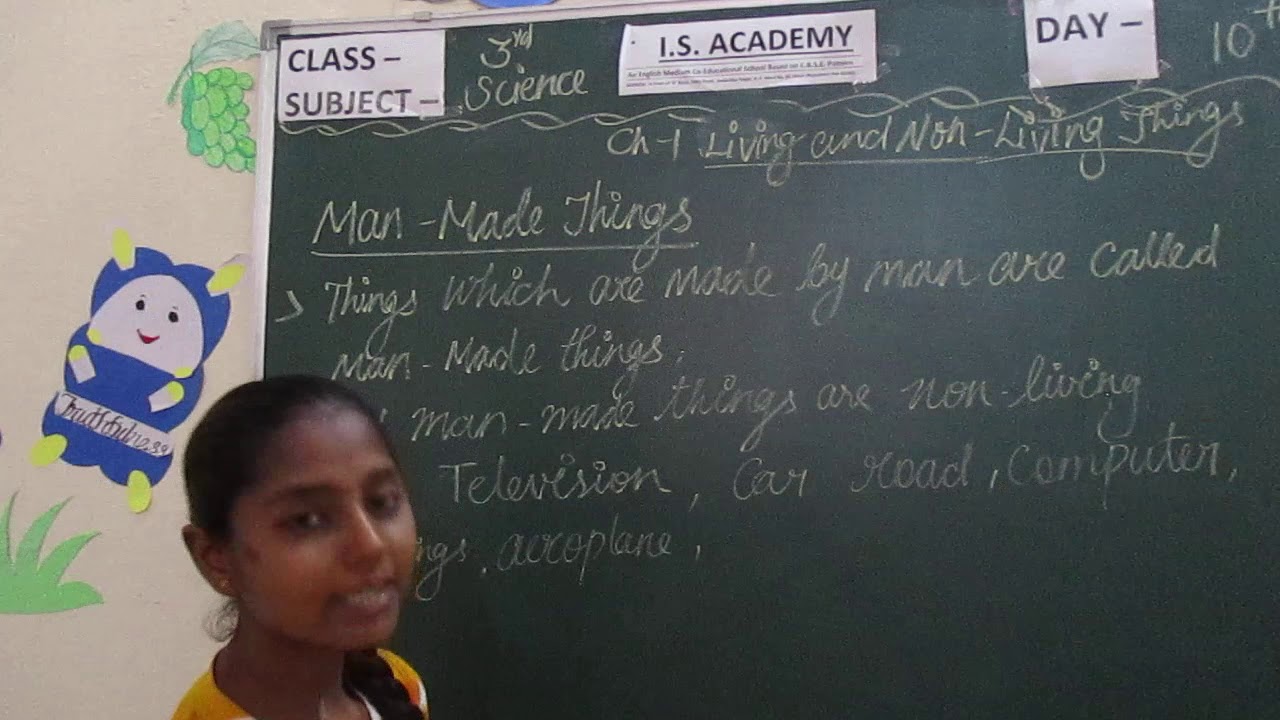 CLASS –
SUBJECT –
3rd
Science
I.S. ACADEMY
An English Medium Co-Educational School Based on C.B.S.E. Pattern
DAY –
10
Ch-1 Living and Non-Living Things
Man-Made Things
> Things which are made by man are called
man-Made things.
man-made things are non-living
Television, Car road, Computer,
ngs, aeroplane,